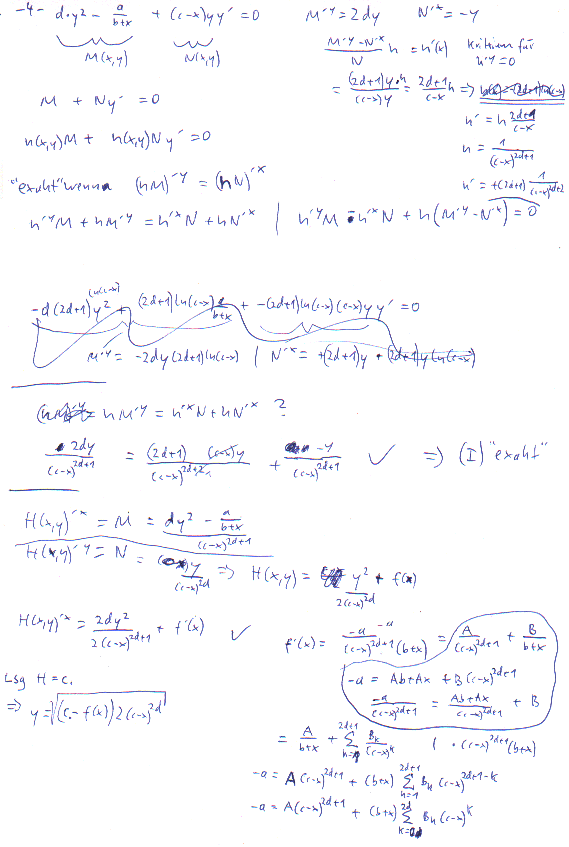 -4- d·y² - a/(b+x) + (c-x)yy' = 0
M(x,y) N(x,y)
M'^y = 2dy N'^x = -y
(M'^y - N'^x)/N h = h'(x) Kriterium für h'^y = 0
= ((2d+1)y·h)/((c-x)y) = (2d+1)/(c-x) h =>
h' = h (2d+1)/(c-x)
h = 1/(c-x)^(2d+1)
h' = +(2d+1) 1/(c-x)^(2d+2)
M + Ny' = 0
h(x,y)M + h(x,y)Ny' = 0
"exakt" wenn (hM)'^y = (hN)'^x
h'^y M + hM'^y = h'^x N + hN'^x | h'^y M - h'^x N + h(M'^y - N'^x) = 0
-d(2d+1)y² + (2d+1)ln(c-x) a/(b+x) + -(2d+1)ln(c-x)(c-x)yy' = 0
M'^y = -2dy(2d+1)ln(c-x) | N'^x = +(2d+1)y + (2d+1)y ln(c-x)
hM'^y = h'^x N + hN'^x ?
2dy/(c-x)^(2d+1) = (2d+1)(c-x)y/(c-x)^(2d+2) + -y/(c-x)^(2d+1) ✓ => (I) "exakt"
H(x,y)'^x = M = (dy² - a/(b+x))/(c-x)^(2d+1)
H(x,y)'^y = N = y/(c-x)^(2d) => H(x,y) = y²/(2(c-x)^(2d)) + f(x)
H(x,y)'^x = 2dy²/(2(c-x)^(2d+1)) + f'(x) ✓
f'(x) = -a/((c-x)^(2d+1)(b+x)) = A/(c-x)^(2d+1) + B/(b+x)
-a = Ab+Ax + B(c-x)^(2d+1)
-a/(c-x)^(2d+1) = (Ab+Ax)/(c-x)^(2d+1) + B
Lsg H = c.
=> y = √((c. - f(x)) 2(c-x)^(2d))
= A/(b+x) + Σ_(k=1)^(2d+1) B_k/(c-x)^k | ·(c-x)^(2d+1)(b+x)
-a = A(c-x)^(2d+1) + (b+x) Σ_(k=1)^(2d+1) B_k (c-x)^(2d+1-k)
-a = A(c-x)^(2d+1) + (b+x) Σ_(k=0)^(2d) B_k (c-x)^k